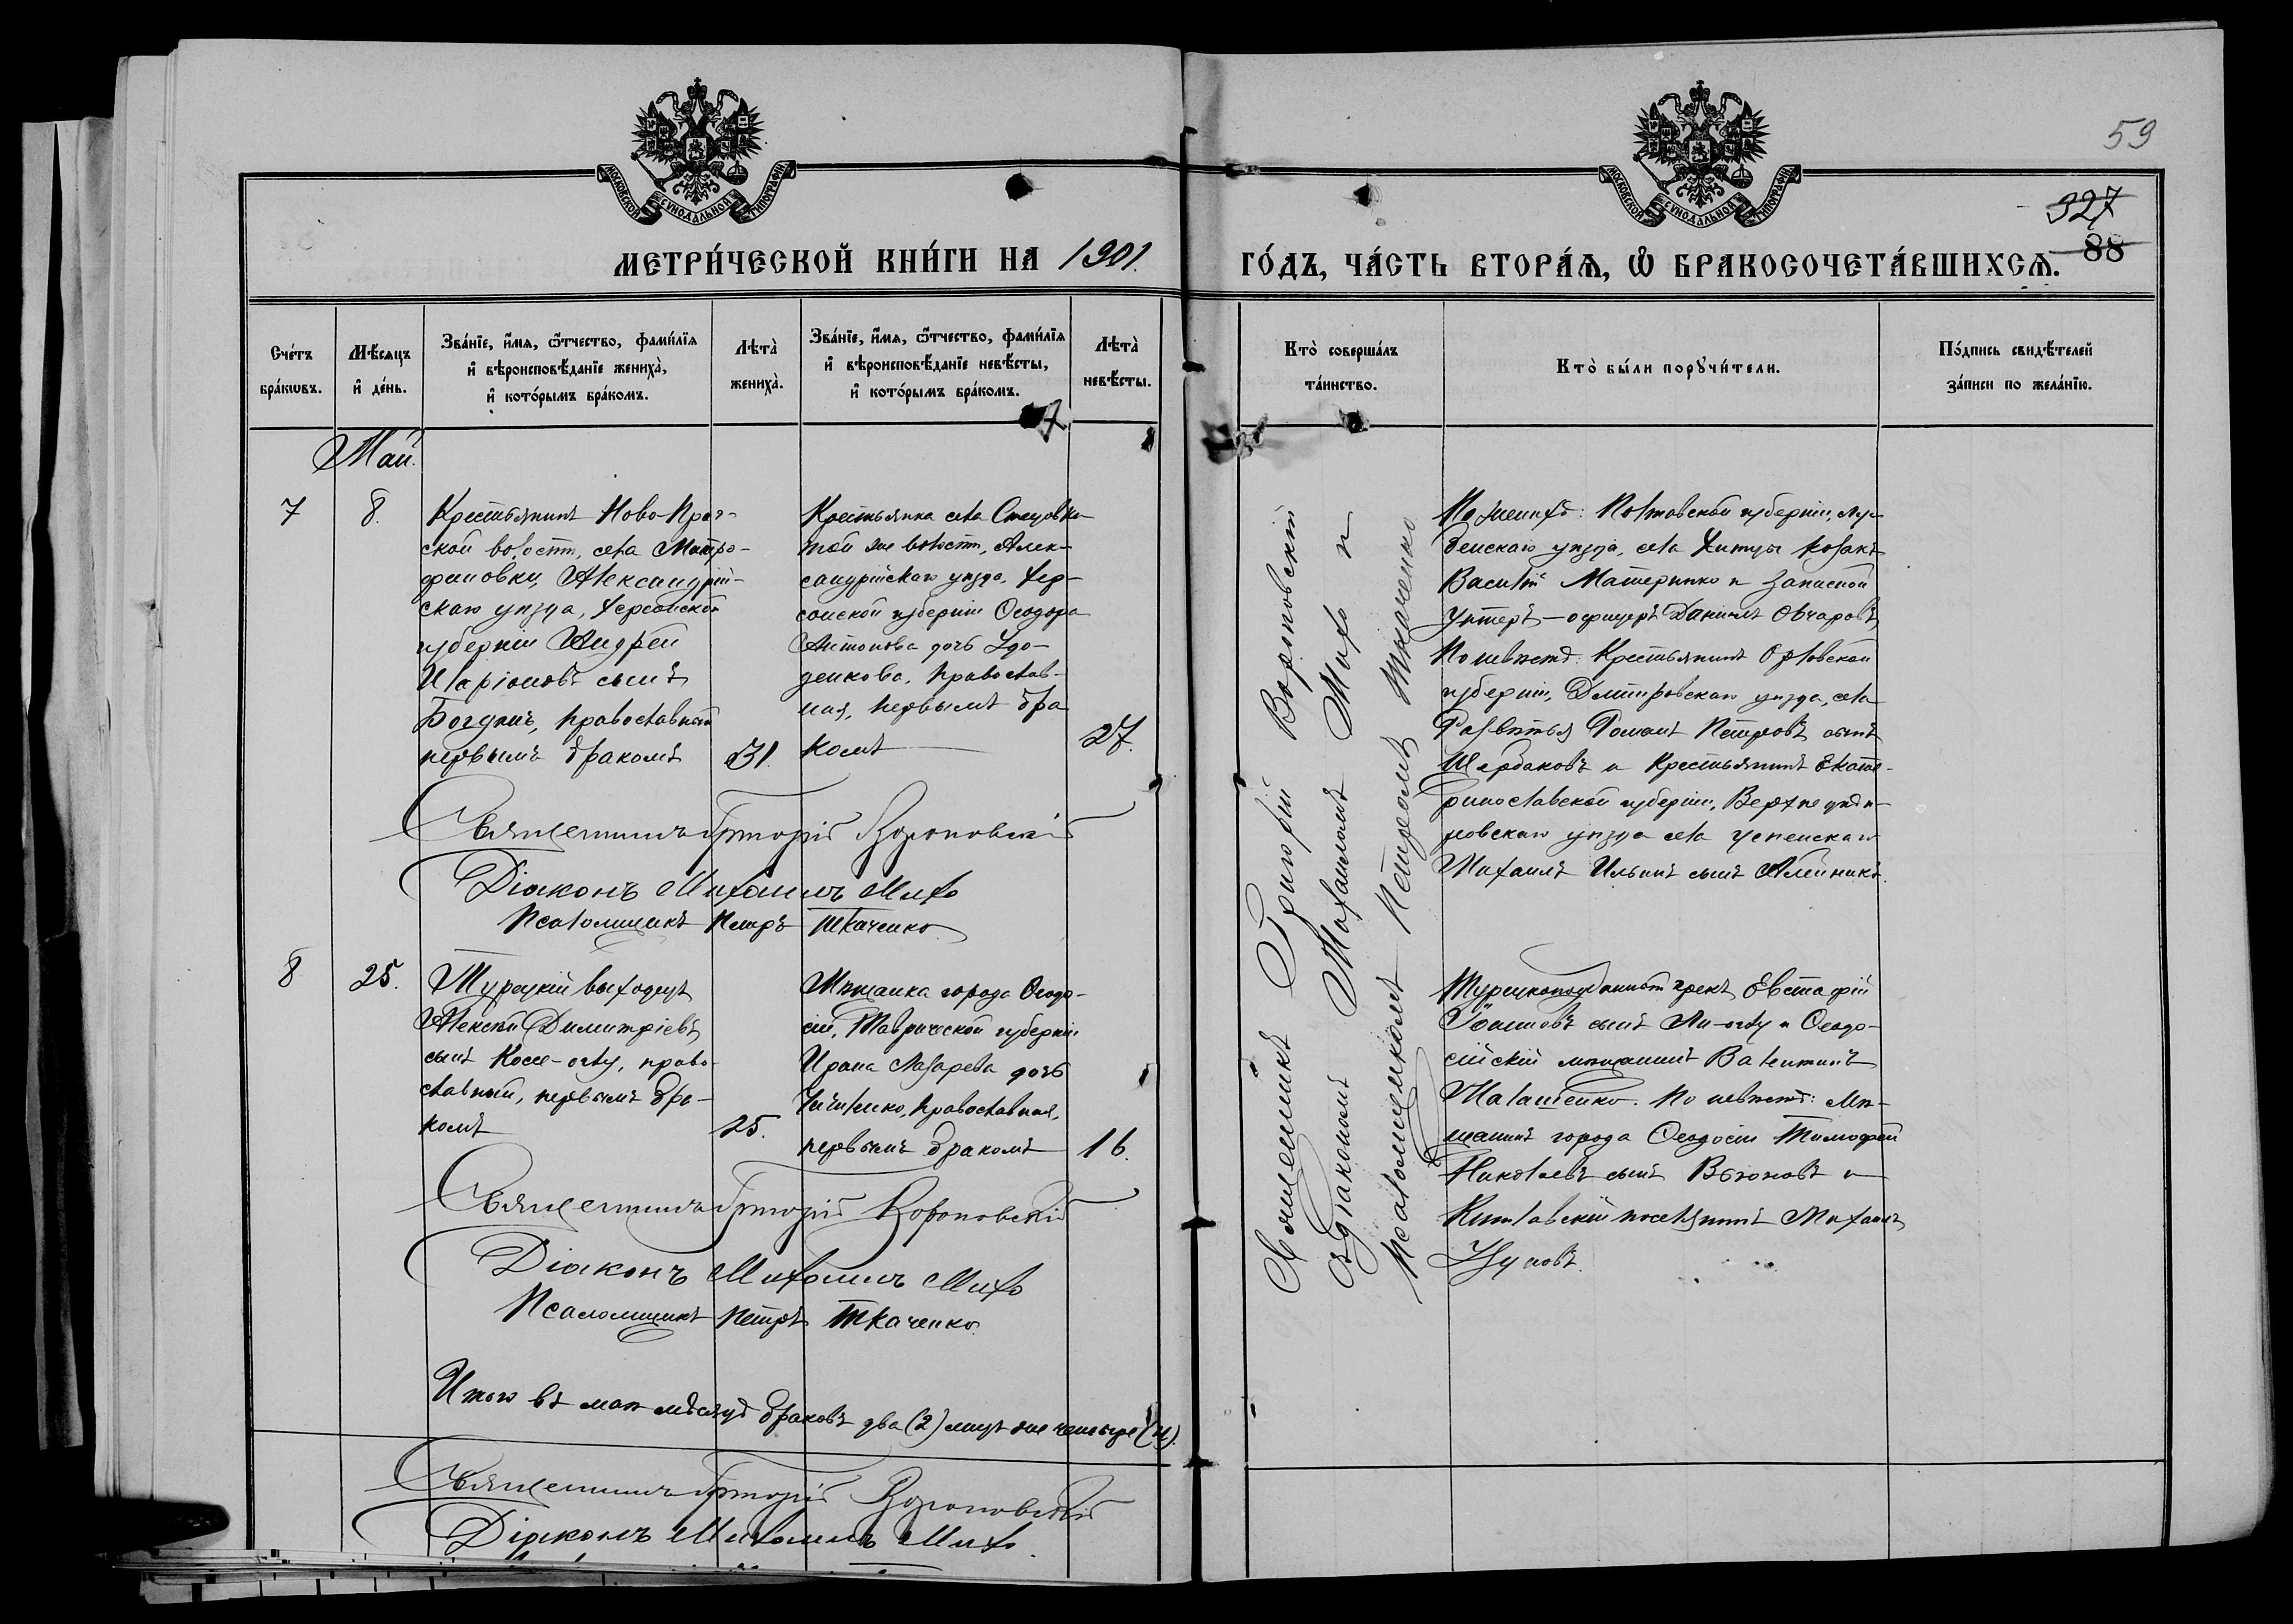 59
327
88
МОСКОВСКОЙ СѴНОДАЛЬНОЙ ТИПОГРАФІИ
МОСКОВСКОЙ СѴНОДАЛЬНОЙ ТИПОГРАФІИ
МЕТРИ́ЧЕСКОЙ КНИ́ГИ НА 1901.
ГО́ДЪ, ЧА́СТЬ ВТОРА́Ѧ, Ѡ҆ БРАКОСОЧЕТА́ВШИХСѦ.
Сче́тъ
бра́кωвъ.
Мѣ́сяцъ
и҆ де́нь.
Зва́нїе, и҆́мя, ѻ҆́тчество, фами́лїя
и҆ вѣроисповѣ́данїе жениха̀,
и҆ кото́рымъ бра́комъ.
Лѣта̀
жениха̀.
Зва́нїе, и҆́мя, ѻ҆́тчество, фами́лїя
и҆ вѣроисповѣ́данїе невѣ́сты,
и҆ кото́рымъ бра́комъ.
Лѣта̀
невѣ́сты.
Кто̀ соверша́лъ
та́инство.
Кто̀ бы́ли порꙋчи́тели.
По́дпись свидѣ́телей
за́писи по жела́нїю.
Май.
7
8.
Крестьянинъ Ново-Праг-
ской волости, села Митро-
фановки, Александрій-
скаго уѣзда, Херсонской
губерніи Андрей
Иларіоновъ сынъ
Богданъ, православный
первымъ бракомъ
31.
Крестьянка села
той же волости, Алек-
сандрійскаго уѣзда, Хер-
сонской губерніи Ѳеодора
Антонова дочь Удо-
денкова, православ-
ная, первымъ бра
комъ
27.
Священникъ Григорій Вороновскій
Діаконъ Михаилъ Михо
Псаломщикъ Петръ Ткаченко
Священникъ Григорій Вороновскій
съ діакономъ Михаиломъ Михо и
псаломщикомъ Петромъ Ткаченко
По женихѣ: Полтавской губерніи, Лу-
бенскаго уѣзда, села Хитцы козакъ
Василій Материнко и запасной
унтеръ-офицеръ Даніилъ Овчаровъ,
По невѣстѣ: Крестьянинъ Орловской
губерніи, Дмитровскаго уѣзда, села
Развѣтья Романъ Петровъ сынъ
Щербаковъ и крестьянинъ Екате-
ринославской губерніи, Верхнеднѣп-
ровскаго уѣзда села Успенскаго
Михаилъ Ильинъ сынъ Алейникъ.
8
25.
Турецкій выходецъ
Алексѣй Димитріевъ
сынъ Косе-оглу, право-
славный, первымъ бра-
комъ
25.
Мѣщанка города Ѳеодо-
сіи, Таврической губерніи
Ирина Лазарева дочь
православная,
первымъ бракомъ
16.
Турецкоподданный грекъ Евстафій
Іоанновъ сынъ Ли-оглу и Ѳеодо-
сійскій мѣщанинъ Валентинъ
Малашенко. По невѣстѣ: мѣ-
щанинъ города Ѳеодосіи Тимофей
Николаевъ сынъ Вьюновъ и
поселянинъ Михаилъ
Узуновъ.
Священникъ Григорій Вороновскій
Діаконъ Михаилъ Михо
Псаломщикъ Петръ Ткаченко.
Итого въ маѣ мѣсяцѣ браковъ два (2) лицъ же четыре (4).
Священникъ Григорій Вороновскій
Діаконъ Михаилъ Михо